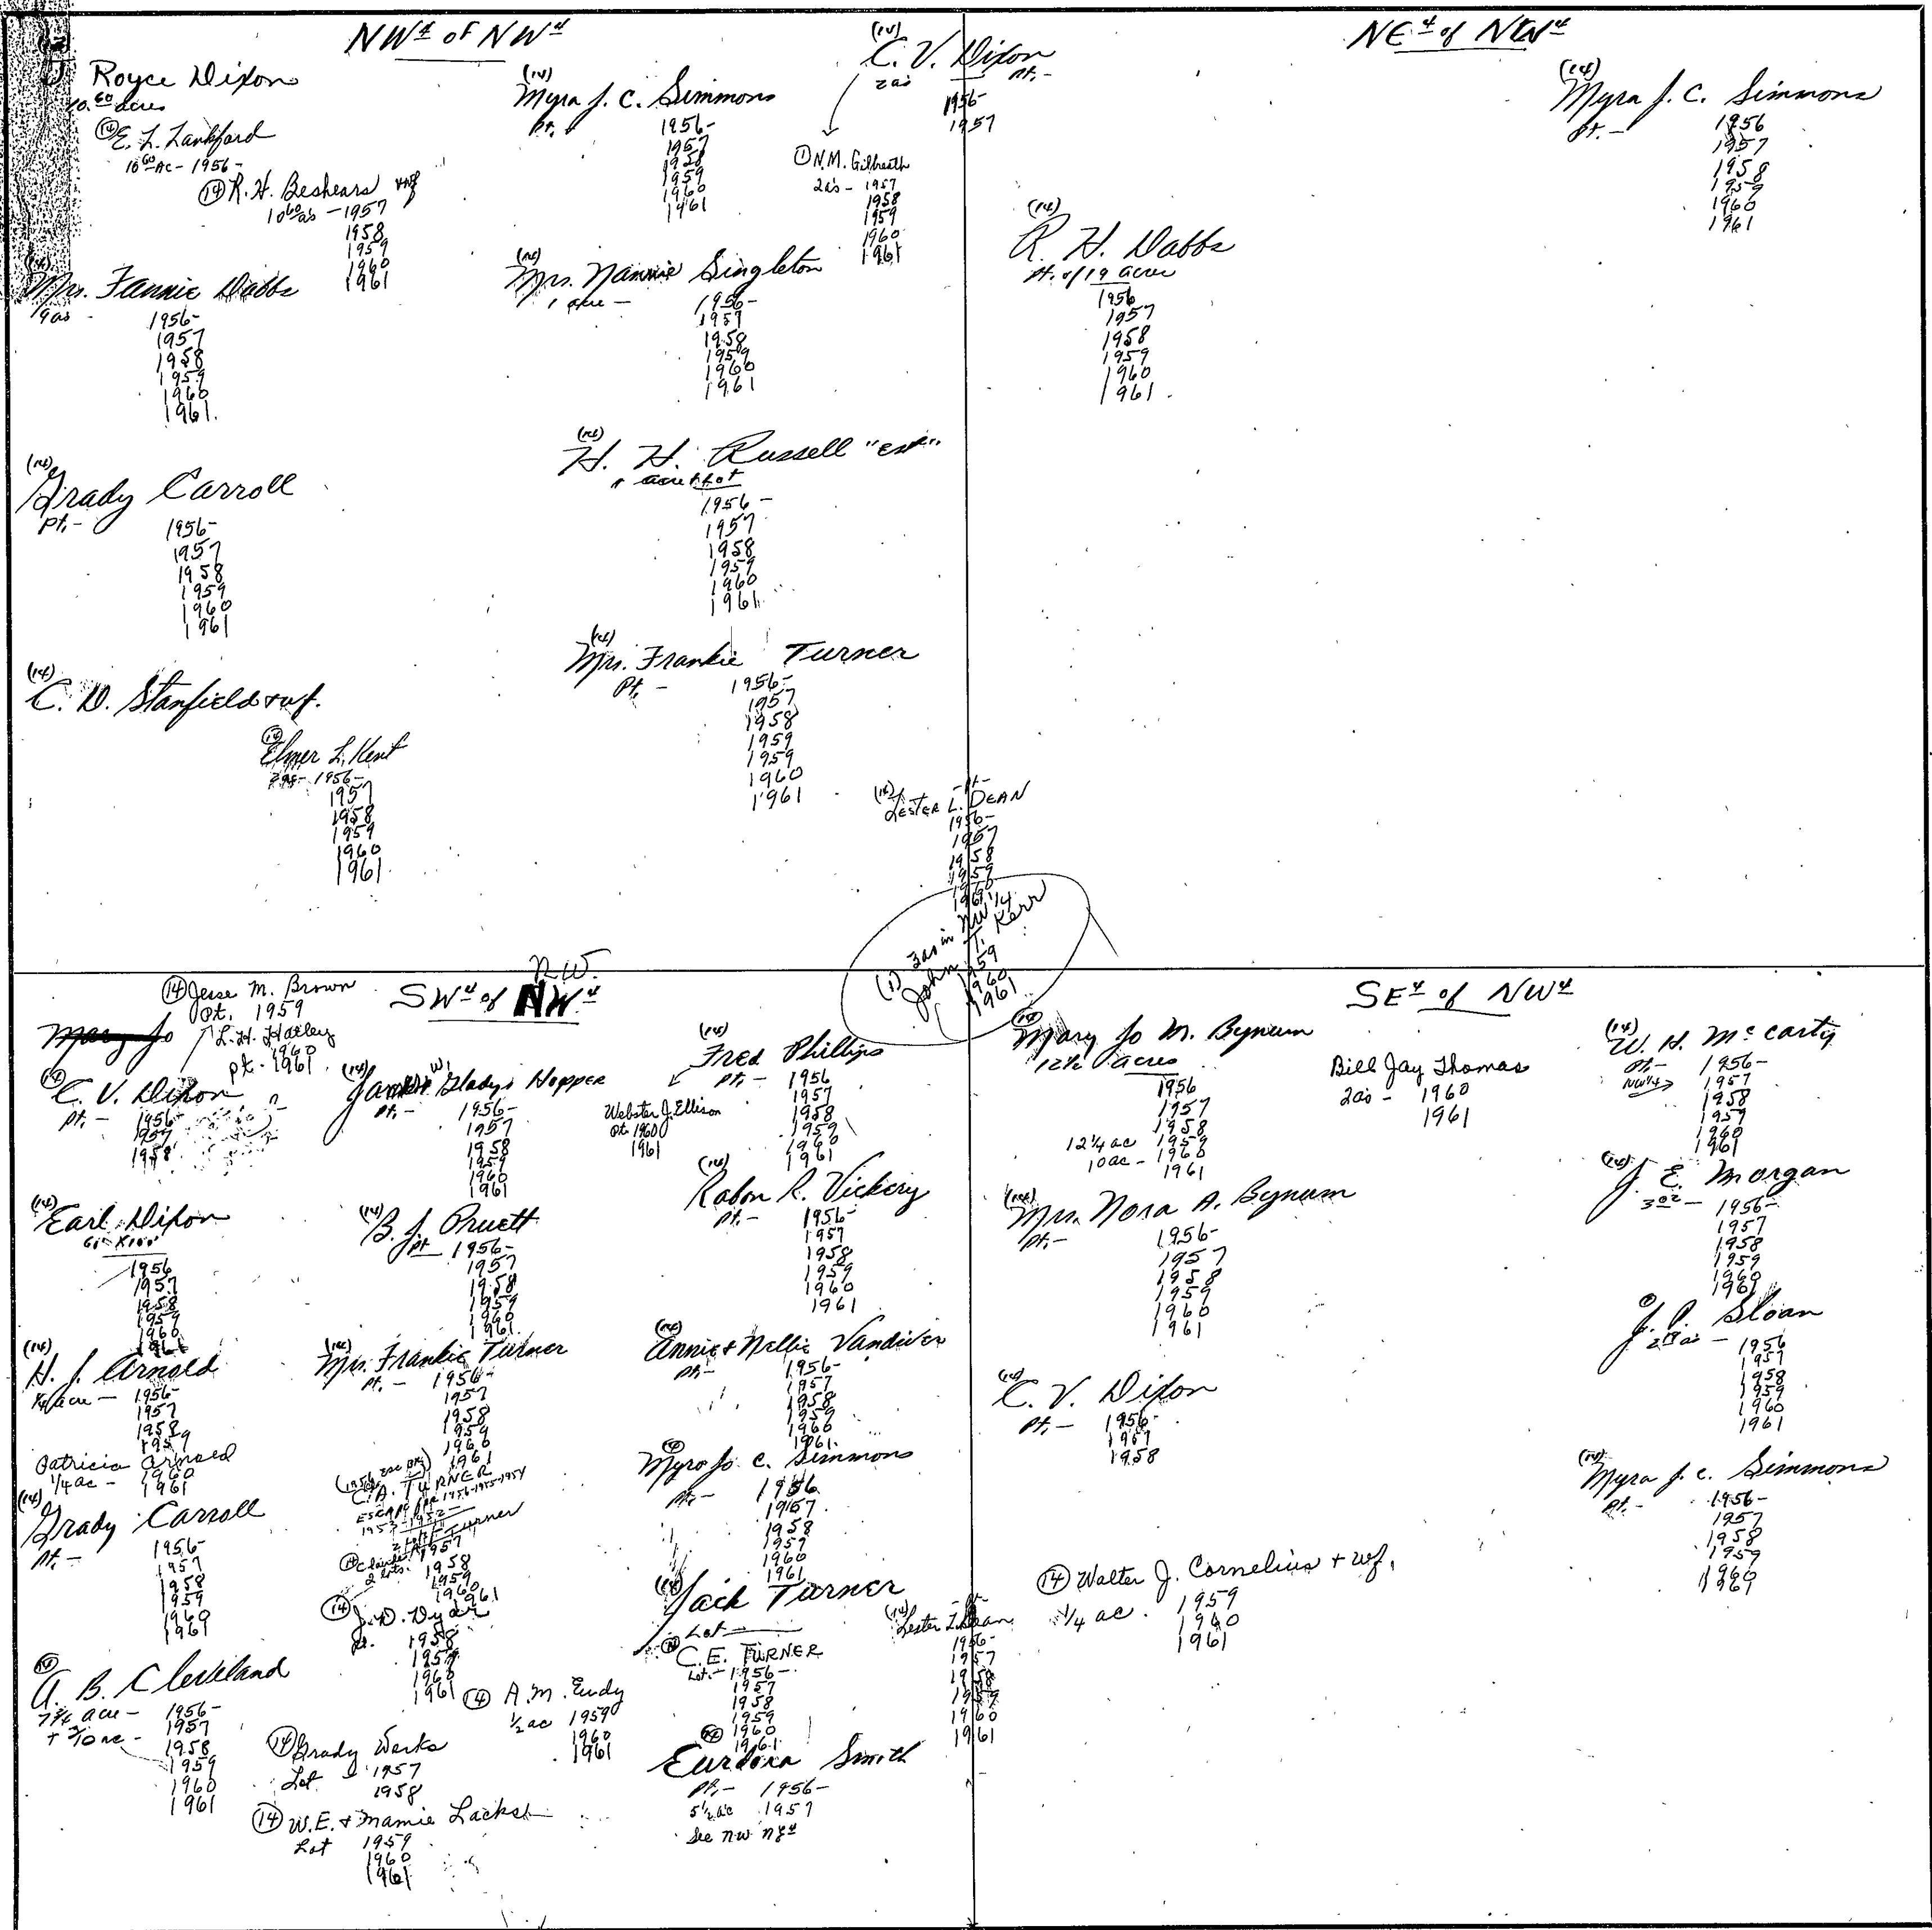 NW 4 of NW 4
Royce Dixon
10.60 acres
(14) E. L. Lankford
10 60 Ac - 1956 -
(14) R. H. Beshears + wf
10 60 as - 1957
1958
1959
1960
1961
Mrs. Fannie Dabbs
9 as
1956-
1957
1958
1959
1960
1961.
(14)
Grady Carroll
Pt. -
1956-
1957
1958
1959
1960
1961
(14)
C. D. Stanfield + wf.
(14)
Elmer L. Kent
2 as - 1956 -
1957
1958
1959
1960
1961
(14)
Myra J. C. Simmons
Pt.
1956-
1957
1958
1959
1960
1961
(14)
Mrs. Nannie Singleton
1 acre -
1956-
1957
1958
1959
1960
1961
(14)
H. H. Russell "est"
1 acre + lot
1956 -
1957
1958
1959
1960
1961
(14)
Mrs. Frankie Turner
Pt. -
1956-
1957
1958
1959
1959
1960
1961
(14)
C. V. Dixon
2 as
Pt. -
1956-
1957
(1) N.M. Gilbreath
2 as - 1957
1958
1959
1960
1961
Pt -
(14)
Lester L. DEAN
1956-
1957
1958
1959
1960
1961
(1) 3 as in NW 1/4
John T. Kerr
1959
1960
1961
NE 4 of NW 4
(14)
Myra J. C. Simmons
Pt. -
1956
1957
1958
1959
1960
1961
(14)
R. H. Dabbs
Pt. of 19 acres
1956
1957
1958
1959
1960
1961.
N.W.
SW 4 of NW 4
(14) Jesse M. Brown
Pt. 1959
Mary Jo
L. H. Hatley
1960
pt - 1961
(14)
C. V. Dixon
Pt. - 1956-
1957
1958
(14)
Earl Dixon
1956
1957
1958
1959
1960
1961
(14)
H. J. Arnold
1/4 acre - 1956-
1957
1958
1959
Patricia Arnold
1/4 ac - 1960
1961
(14)
Grady Carroll
Pt. -
1956-
1957
1958
1959
1960
1961
(14)
A. B. Cleveland
7 3/4 acre - 1956-
1957
1958
1959
1960
1961
(14)
W.
Gladys Hopper
Pt. -
1956-
1957
1958
1959
1960
1961
(14)
B. J. Pruett
Pt 1956-
1957
1958
1959
1960
1961
(14)
Mrs. Frankie Turner
Pt. - 1956-
1957
1958
1959
1960
1961
C. A. TURNER
ESCAPE
1953-1952
2 lots
Turner
2 lots. 1957
1958
1959
1960
1961
(14)
J. D. Dyar
Pt. 1958
1959
1960
1961
(14) A. M. Eudy
1/2 ac 1959
1960
1961
(14) Grady Werks
Lot 1957
1958
(14) W.E. + Mamie
Lot 1959
1960
1961
(14)
Fred Phillips
Pt. - 1956
1957
1958
1959
1960
1961
Webster J. Ellison
Pt. 1960
1961
(14)
Rabon R. Vickery
Pt. -
1956-
1957
1958
1959
1960
1961
(14)
Annie + Nellie Vandiver
Pt. -
1956-
1957
1958
1959
1960
1961.
(14)
Myra Jo C. Simmons
Pt. -
1956
1957
1958
1959
1960
1961
(14)
Jack Turner
Lot -
(14)
C. E. TURNER
Lot. - 1956 -
1957
1958
1959
1960
1961
Eurdora Smith
Pt. - 1956-
5 1/2 ac 1957
See NW NE 4
Pt -
(14)
Lester L. Dean
1956-
1957
1958
1959
1960
1961
SE 4 of NW 4
(14)
Mary Jo M. Bynum
12 1/2 acres
1956
1957
1958
12 1/4 ac 1959
10 ac - 1960
1961
Bill Jay Thomas
2 as - 1960
1961
(14)
Mrs. Nora A. Bynum
Pt. -
1956-
1957
1958
1959
1960
1961
(14)
C. V. Dixon
Pt. - 1956-
1957
1958
(14) Walter J. Cornelius + wf.
1/4 ac. 1959
1960
1961
(14)
W. H. McCarty
Pt. - 1956-
NW 1/4 1957
1958
1959
1960
1961
(14)
J. E. Morgan
1956-
1957
1958
1959
1960
1961
J. P. Sloan
1956
1957
1958
1959
1960
1961
(14)
Myra J. C. Simmons
Pt. -
1956-
1957
1958
1959
1960
1961